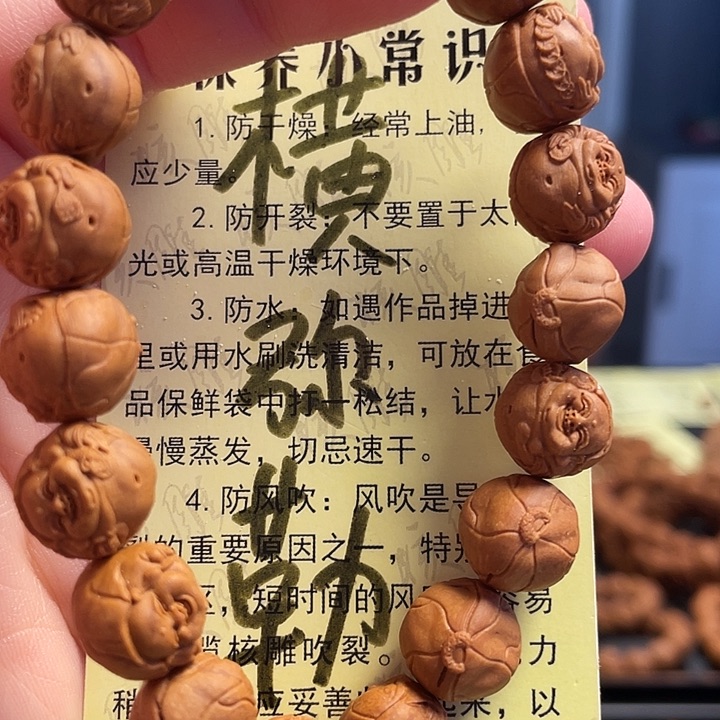 保养小常识
1. 防干燥：经常上油，
应少量。
2. 防开裂：不要置于太
光或高温干燥环境下。
3. 防水：如遇作品掉进
里或用水刷洗清洁，可放在食
品保鲜袋中打一松结，让水
慢慢蒸发，切忌速干。
4. 防风吹：风吹是导
裂的重要原因之一，特别
区，短时间的风 容易
榄核雕吹裂。 力
稍 应妥善 起来，以
横弥勒